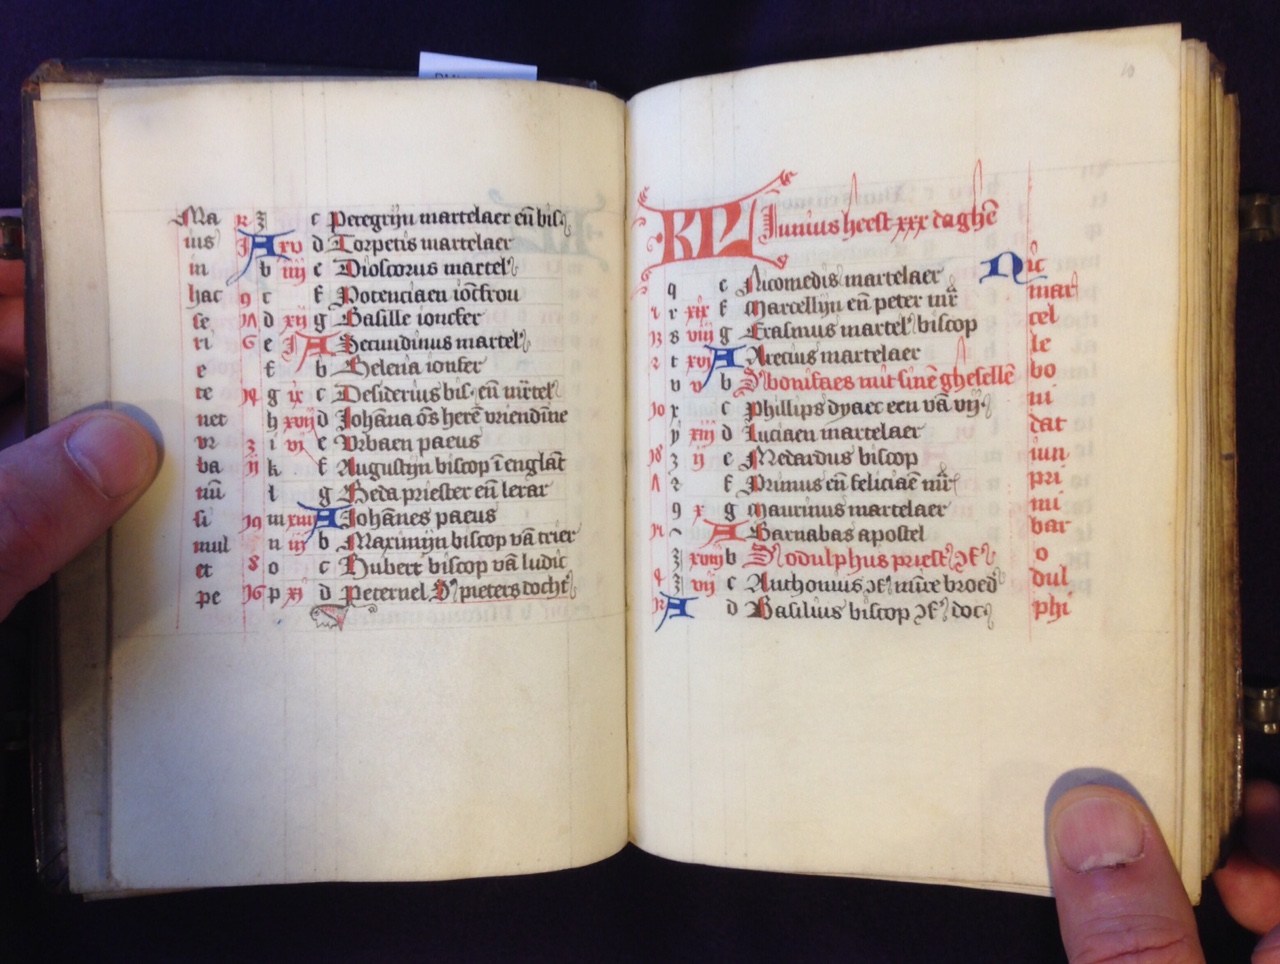 Ma z c Peregrijn martelaer en̄ bisc
ius A xv d Torpetis martelaer
in b iiij e Dioscorus martel
hac 9 c f Potenciaen iōcfrou
se d xij g Basille ioncfer
ri 6 e j A Secundinus martel
e f b Helena ionfer
te 14 g ix c Desiderius bis. en̄ m̄rtel
net h xvij d Johāna ōs herē vriendīne
vr 3 i vj e Vrbaen paeus
ba ij k f Augustijn biscop ī englāt
nū l g Beda priester en̄ lerar
si 19 m xiiij A Johānes paeus
mul n iij b Maximijn biscop vā trier
et 8 o c Hubert biscop vā ludic
pe 16 p xj d Peternel S pieters docht
KL Junius heest xxx daghē
Nic
q e Nicomedis martelaer mar
r xix f Marcellijn en̄ peter mr̄ cel
13 s viij g Erasmus martel biscop le
2 t xvj A Arecius martelaer bo
v v b S bonifaes mit sinē ghesellē ni
10 x c Phillips dyaec een vā vij. dat
y xiij d Luciaen martelaer iun
18 z ij e Medardus biscop pri
f Primus en̄ feliciaē mr̄ mi
9 x g Maurinus martelaer bar
A Barnabas apostel o
z xviij b S odulphus priest dul
z vij c Anthonius mīre broed phi
A d Basilius biscop doc